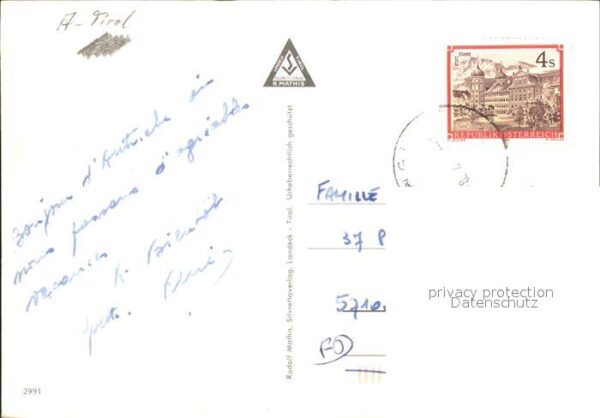 A-Tirol
Bonjour d'Autriche où
nous passons d'agréables
vacances. A Bientôt
R. MATHIS
Rudolf Mathis, Silvrettaverlag, Landeck - Tirol. Urheberrechtlich geschützt
2991
4 S
STIFT STAMS
REPUBLIK ÖSTERREICH
FAMILLE
37 P
5710
privacy protection
Datenschutz